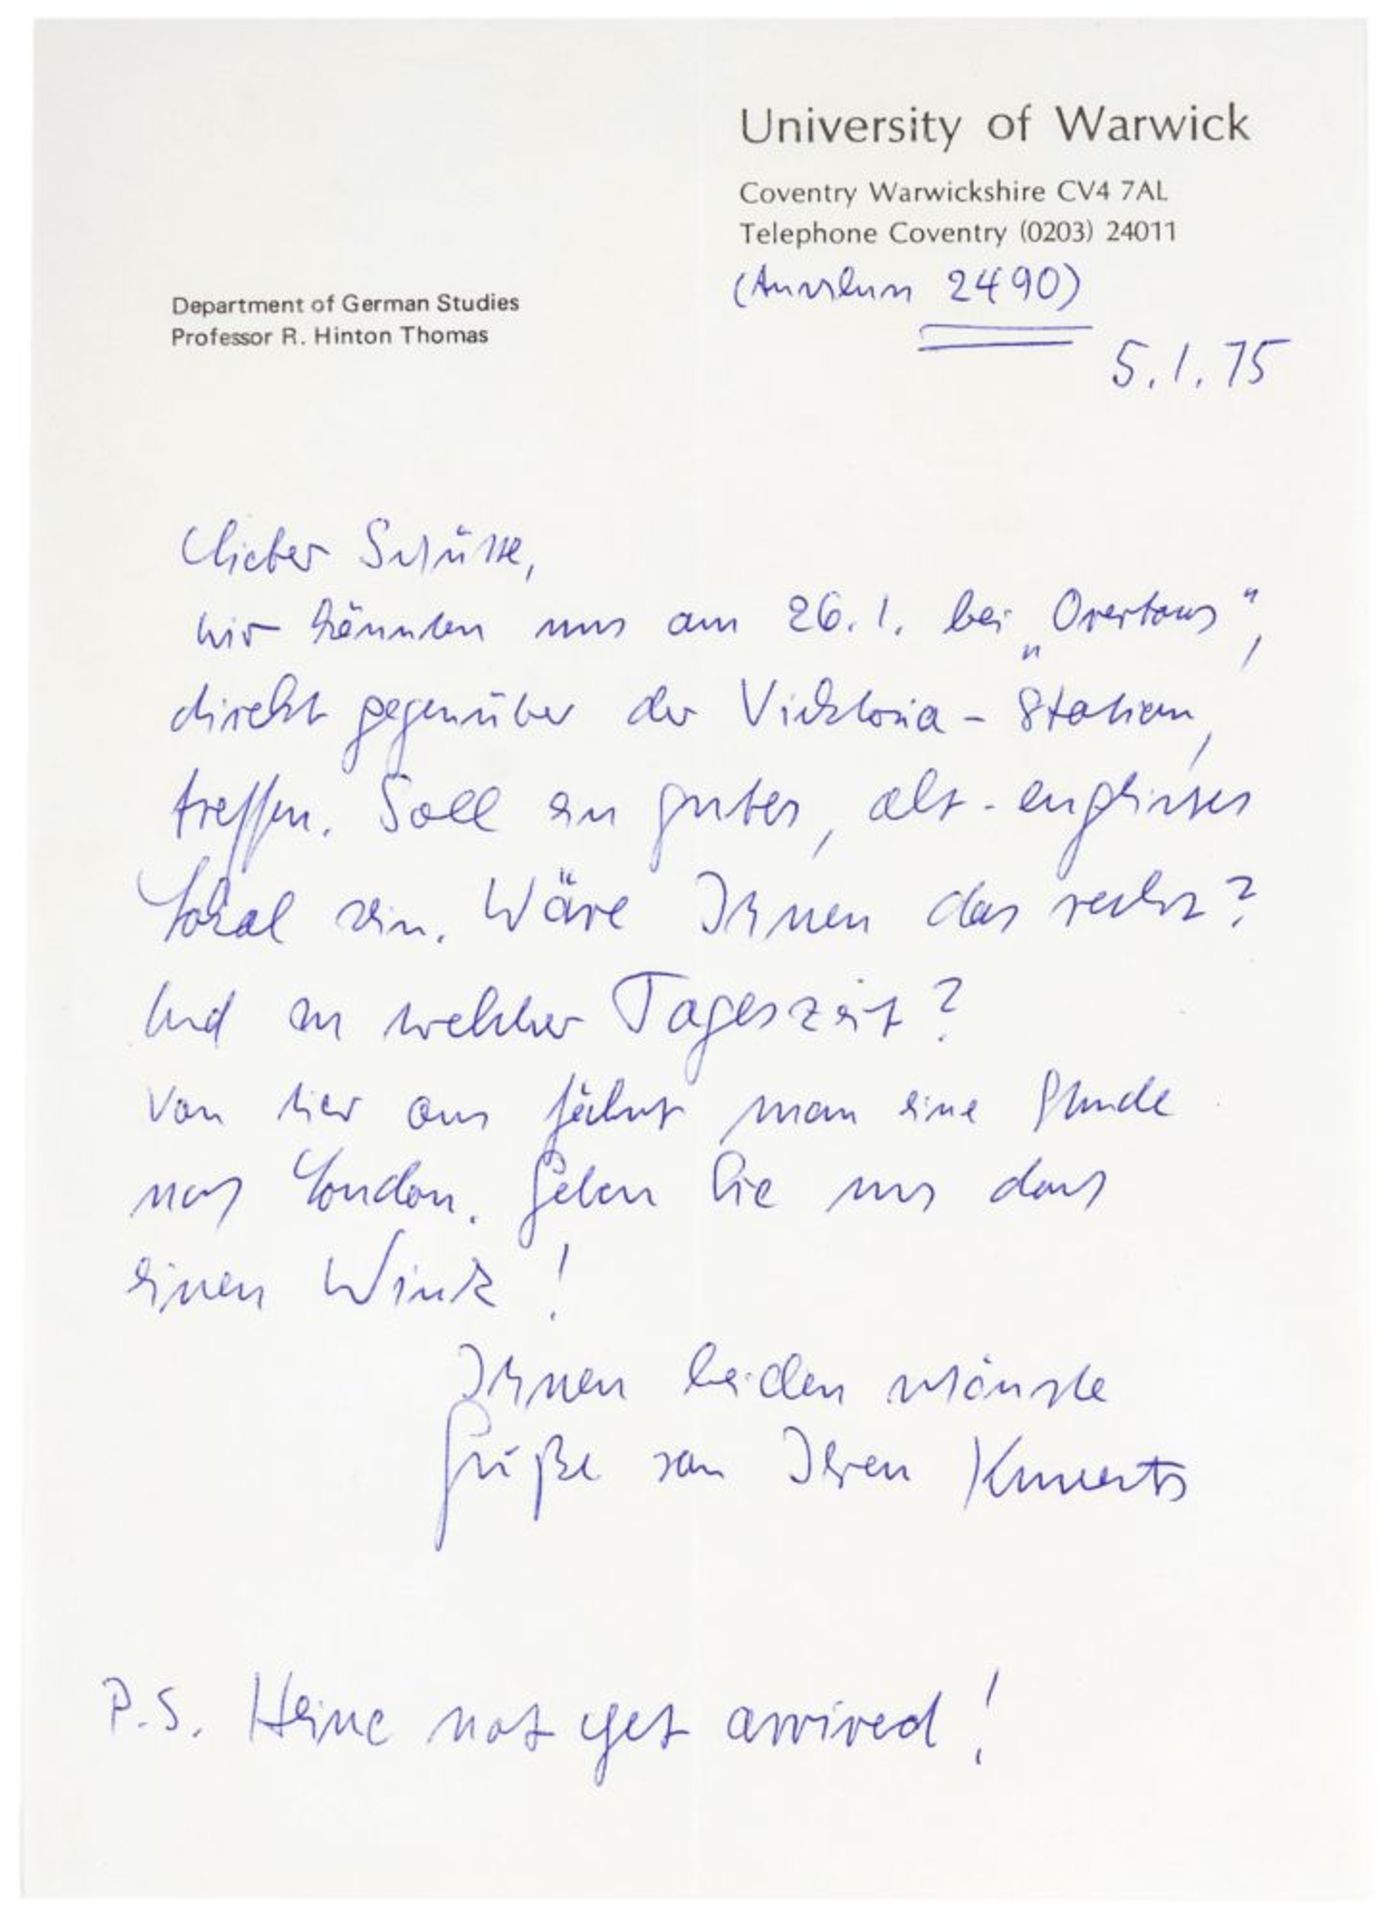 University of Warwick
Coventry Warwickshire CV4 7AL
Telephone Coventry (0203) 24011
(Anschluss 2490)
Department of German Studies
Professor R. Hinton Thomas
5.1.75
Lieber Schütte,
wir könnten uns am 26.1. bei „Overtons“,
direkt gegenüber der Vicktoria-Station,
treffen. Soll ein gutes, alt-englisches
Lokal sein. Wäre Ihnen das recht?
Und zu welcher Tageszeit?
Von hier aus fährt man eine Stunde
nach London. Geben Sie uns doch
einen Wink!
Ihnen beiden schönste
Grüße von Ihren Kunerts
P.S. Heine not yet arrived!